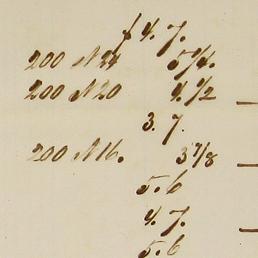 f 4. 7.
200 N24 5 1/4.
200 N20 4 1/2
3. 7.
200 N16. 3 7/8
5. 6
4. 7.
5. 6